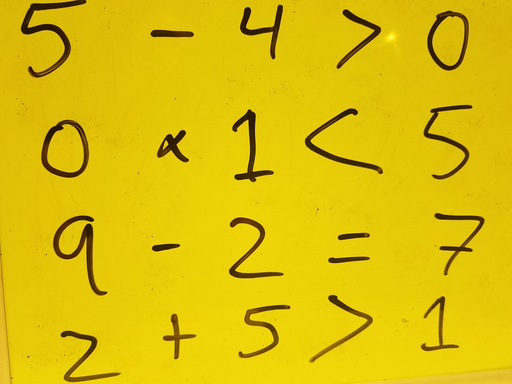 5 - 4 > 0
0 × 1 < 5
9 - 2 = 7
2 + 5 > 1